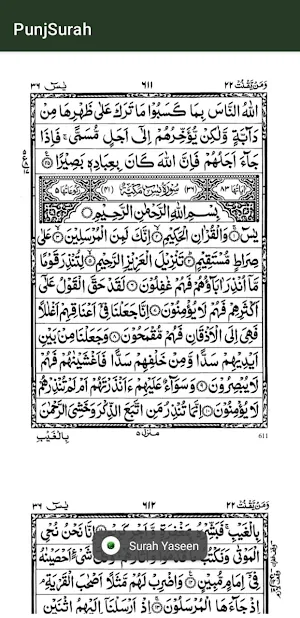 PunjSurah
يٰسٓ ٣٦
٦١١
وَمَنْ يَّقْنُتْ ٢٢
اللّٰهُ النَّاسَ بِمَا كَسَبُوْا مَا تَرَكَ عَلٰى ظَهْرِهَا مِنْ
دَآبَّةٍ وَّلٰكِنْ يُّؤَخِّرُهُمْ اِلٰٓى اَجَلٍ مُّسَمًّى ۚ فَاِذَا
جَآءَ اَجَلُهُمْ فَاِنَّ اللّٰهَ كَانَ بِعِبَادِهٖ بَصِيْرًا
اٰيَاتُهَا ٨٣ (٣٦) سُوْرَةُ يٰسٓ مَكِّيَّةٌ (٤١) رُكُوْعَاتُهَا ٥
بِسْمِ اللّٰهِ الرَّحْمٰنِ الرَّحِيْمِ
يٰسٓ ۚ وَالْقُرْاٰنِ الْحَكِيْمِ ۙ اِنَّكَ لَمِنَ الْمُرْسَلِيْنَ ۙ عَلٰى
صِرَاطٍ مُّسْتَقِيْمٍ ؕ تَنْزِيْلَ الْعَزِيْزِ الرَّحِيْمِ ۙ لِتُنْذِرَ قَوْمًا
مَّآ اُنْذِرَ اٰبَآؤُهُمْ فَهُمْ غٰفِلُوْنَ لَقَدْ حَقَّ الْقَوْلُ عَلٰٓى
اَكْثَرِهِمْ فَهُمْ لَا يُؤْمِنُوْنَ اِنَّا جَعَلْنَا فِيْٓ اَعْنَاقِهِمْ اَغْلٰلًا
فَهِيَ اِلَى الْاَذْقَانِ فَهُمْ مُّقْمَحُوْنَ وَجَعَلْنَا مِنْۢ بَيْنِ
اَيْدِيْهِمْ سَدًّا وَّمِنْ خَلْفِهِمْ سَدًّا فَاَغْشَيْنٰهُمْ فَهُمْ
لَا يُبْصِرُوْنَ ٩ وَسَوَآءٌ عَلَيْهِمْ ءَاَنْذَرْتَهُمْ اَمْ لَمْ تُنْذِرْهُمْ
لَا يُؤْمِنُوْنَ ١٠ اِنَّمَا تُنْذِرُ مَنِ اتَّبَعَ الذِّكْرَ وَخَشِيَ الرَّحْمٰنَ
بِالْغَيْبِ
منزل ٥
611
يٰسٓ ٣٦
٦١٢
وَمَنْ يَّقْنُتْ ٢٢
بِالْغَيْبِ ۚ فَبَشِّرْهُ بِمَغْفِرَةٍ اِنَّا نَحْنُ نُحْيِ
الْمَوْتٰى وَنَكْتُبُ شَيْءٍ اَحْصَيْنٰهُ
Surah Yaseen
فِيْٓ اِمَامٍ مُّبِيْنٍ وَاضْرِبْ لَهُمْ مَّثَلًا اَصْحٰبَ الْقَرْيَةِ ۘ
اِذْ جَآءَهَا الْمُرْسَلُوْنَ اِذْ اَرْسَلْنَآ اِلَيْهِمُ اثْنَيْنِ